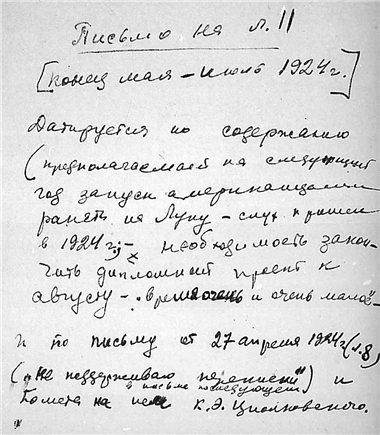 Письмо на л. 11
[конец мая – июль 1924 г.]
Датируется по содержанию
(предполагаемый на следующий
год запуск американцами
ракеты на Луну – слух пришел
в 1924 г.; – необходимость закон-
чить дипломный проект к
августу – "время очень и очень мало" –
и по письму от 27 апреля 1924 г. (л. 8)
("не поддерживаю переписки") и
в письме последующем
помета на нем К.Э. Циолковского.